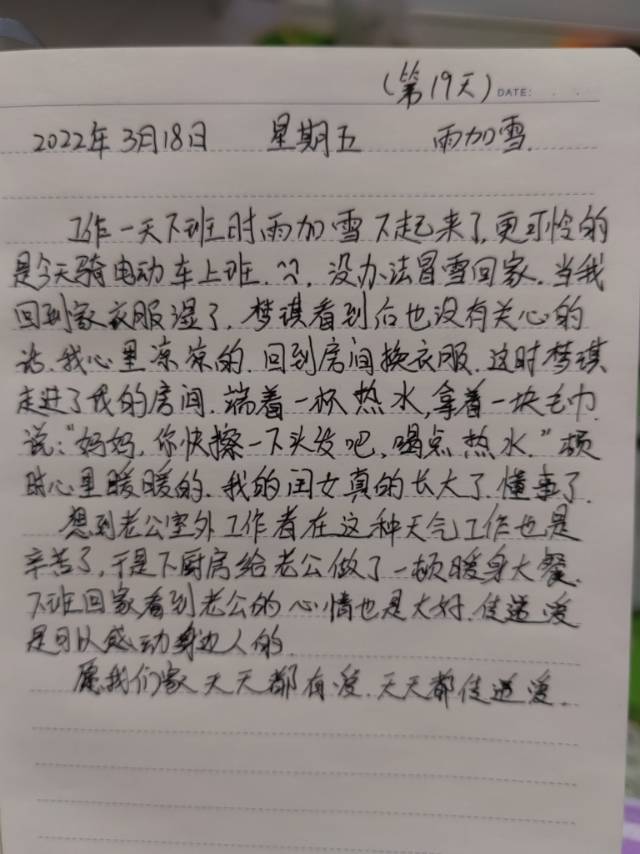 (第19天) DATE:
2022年3月18日 星期五 雨加雪.
工作一天下班时雨加雪下起来了,更可怜的
是今天骑电动车上班.^^. 没办法冒雪回家.当我
回到家衣服湿了.梦琪看到后也没有关心的
话.我心里凉凉的.回到房间换衣服.这时梦琪
走进了我的房间.端着一杯热水,拿着一块毛巾
说:“妈妈,你快擦一下头发吧,喝点热水.”顿
时心里暖暖的.我的闺女真的长大了.懂事了.
想到老公室外工作者在这种天气工作也是
辛苦了,于是下厨房给老公做了一顿暖身大餐.
下班回家看到老公的心情也是大好.传递爱
是可以感动身边人的.
愿我们家天天都有爱.天天都传递爱.